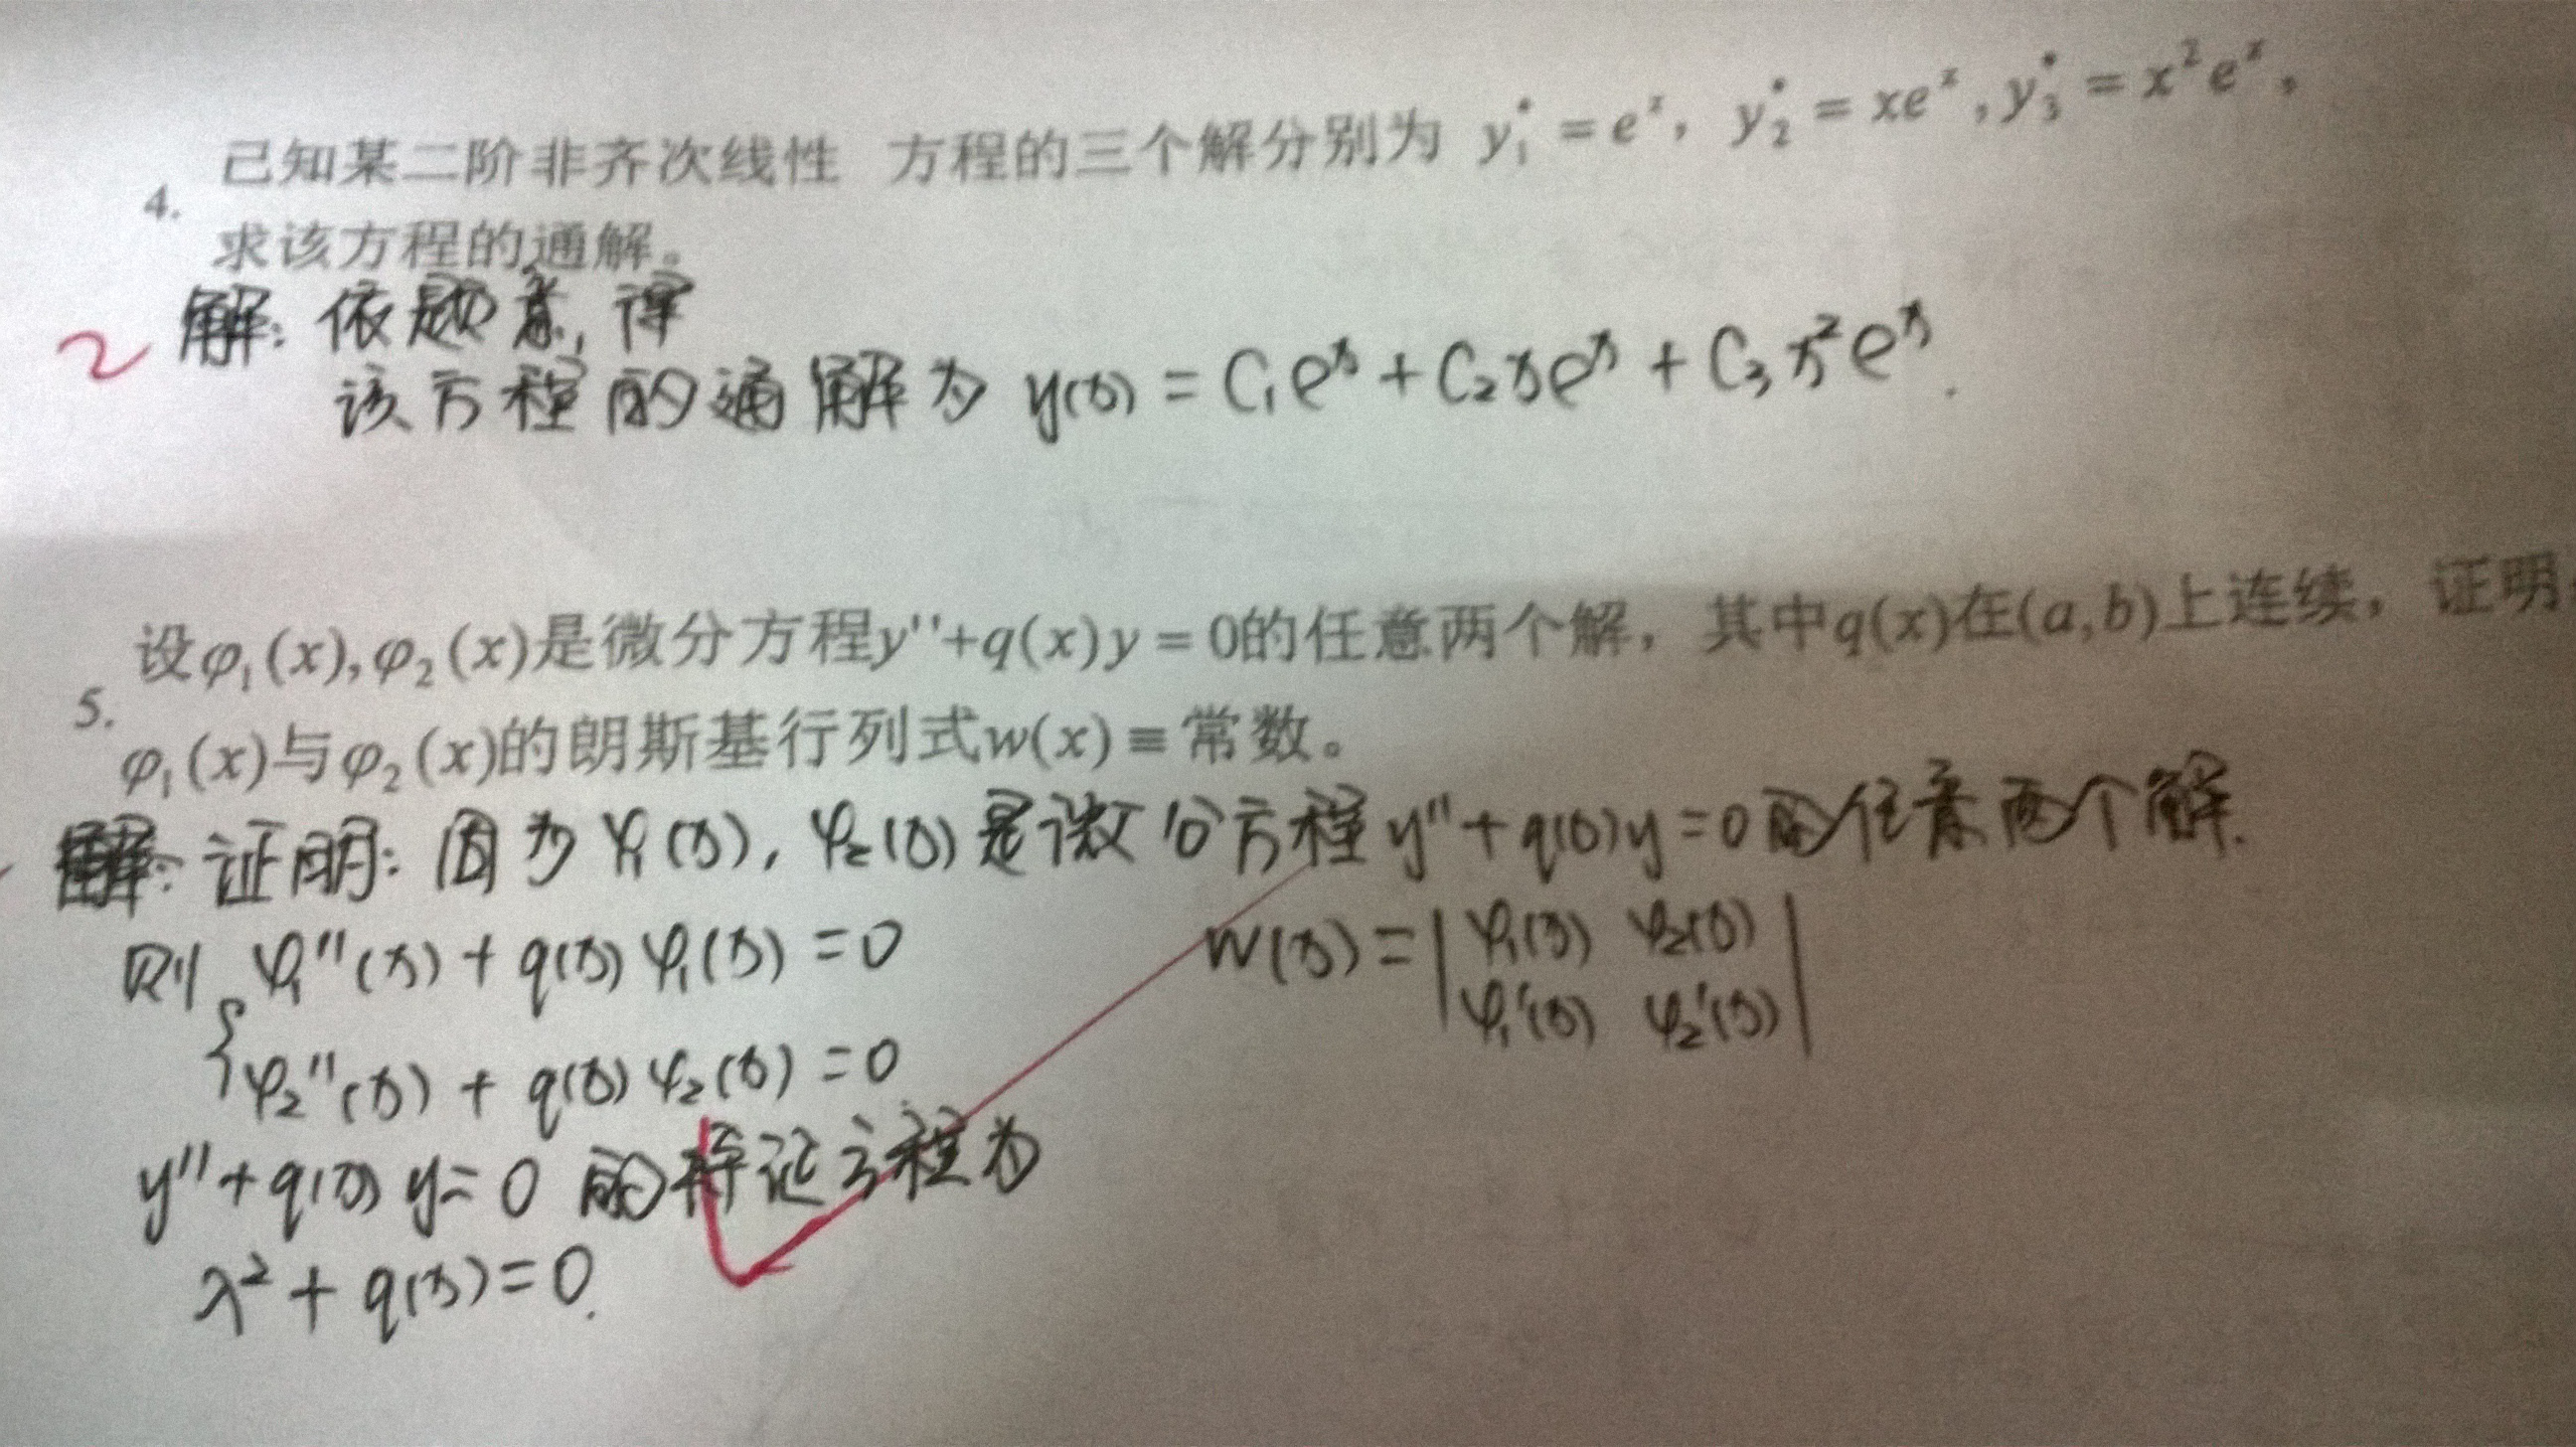 4. 已知某二阶非齐次线性 方程的三个解分别为 y₁* = eˣ, y₂* = xeˣ, y₃* = x²eˣ,
求该方程的通解。
2 解: 依题意, 得
该方程的通解为 y(x) = C₁eˣ + C₂xeˣ + C₃x²eˣ.
5. 设φ₁(x),φ₂(x)是微分方程y''+q(x)y = 0的任意两个解，其中q(x)在(a,b)上连续，证明
φ₁(x)与φ₂(x)的朗斯基行列式w(x) ≡ 常数。
证明: 因为 φ₁(x), φ₂(x) 是微分方程 y'' + q(x)y = 0 的任意两个解.
则 { φ₁''(x) + q(x) φ₁(x) = 0
φ₂''(x) + q(x) φ₂(x) = 0
W(x) = | φ₁(x) φ₂(x) |
| φ₁'(x) φ₂'(x) |
y'' + q(x) y = 0 的特证方程为
λ² + q(x) = 0.